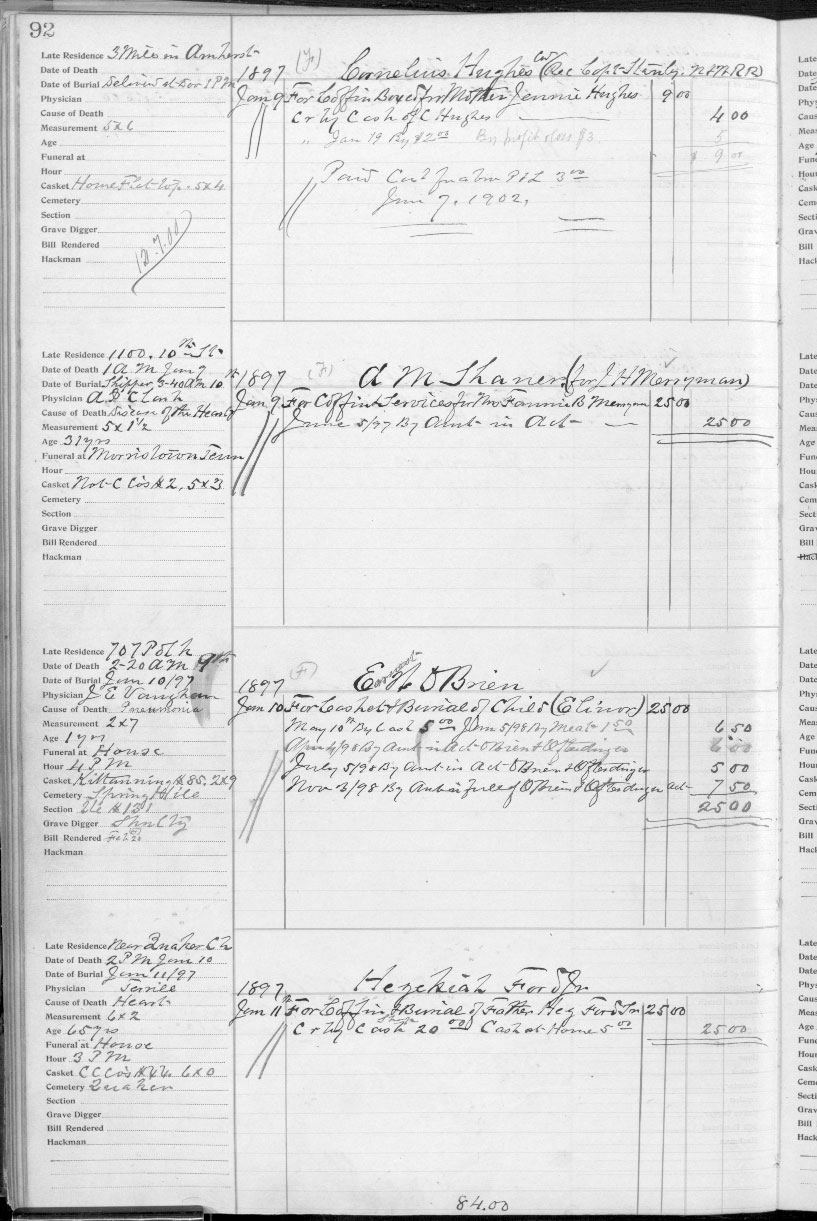 92
Late Residence 3 Mile in Amherst
Date of Death
Date of Burial Delivered at Door 1 PM
Physician
Cause of Death
Measurement 5x6
Age
Funeral at
Hour
Casket Home Flat top. 5x4
Cemetery
Section
Grave Digger
Bill Rendered
Hackman
12.7.00
1897 (F) Cornelius Hughes Cold (Rec Capt Stanly. N&W RR)
Jan 9 For Coffin Boxed for Mother Jennie Hughes 9 00
Cr by Cash of C Hughes 4 00
" Jan 19 By $2 00 By profit & loss $3 5
$ 9 00
Paid Cash P&L 3 00
Jan 7. 1902.
Late Residence 1100. 10th St
Date of Death 1 A M Jan 9
Date of Burial Shipper 3-40 AM 10th
Physician A B Clark
Cause of Death Disease of the Heart
Measurement 5x1½
Age 31 yrs
Funeral at Morristown Tenn
Hour
Casket Nat C Co's #2, 5x3
Cemetery
Section
Grave Digger
Bill Rendered
Hackman
1897 (F) A M Shaner (for J H Merryman)
Jan 9 For Coffin & Services for Mrs Fannie B Merryman 25 00
June 5/97 By Amt in Act 25 00
Late Residence 707 Polk
Date of Death 2-20 A M 9th
Date of Burial Jan 10/97
Physician J E Vaughan
Cause of Death Pneumonia
Measurement 2x7
Age 1 yr
Funeral at House
Hour 4 P M
Casket Kittanning #85. 2x9
Cemetery Spring Hill
Section #131
Grave Digger Shulty
Bill Rendered Feb 20
Hackman
1897 (F) E H O Brien
Jan 10 For Casket & Burial of Child (Elinor) 25 00
May 10th By Cash 5 00 Jan 5/98 By Meat 1 50 6 50
Apr 4/98 By Amt in Act O Brien & Ofterdinger 6 00
July 5/98 By Amt in Act O Brien & Ofterdinger 5 00
Nov 3/98 By Amt in full of O Brien & Ofterdinger act 7 50
25 00
Late Residence Near Quaker Ch
Date of Death 2 P M Jan 10
Date of Burial Jan 11/97
Physician Terrile
Cause of Death Heart
Measurement 6x2
Age 65 yrs
Funeral at House
Hour 3 P M
Casket C C Co's 6x0
Cemetery Quaker
Section
Grave Digger
Bill Rendered
Hackman
1897 Hezekiah Ford Jr
Jan 11th For Coffin & Burial of Father Hez Ford Sr 25 00
Cr by Cash 20 00 Cash at Home 5 00 25 00
84.00